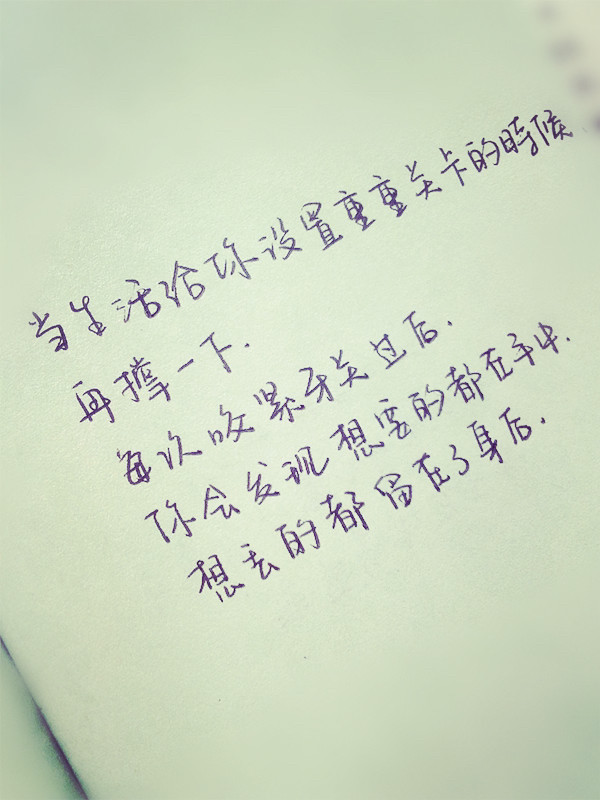 当生活给你设置重重关卡的時候
再撑一下.
每次咬紧牙关过后.
你会发现想要的都在手中.
想丢的都留在了身后.